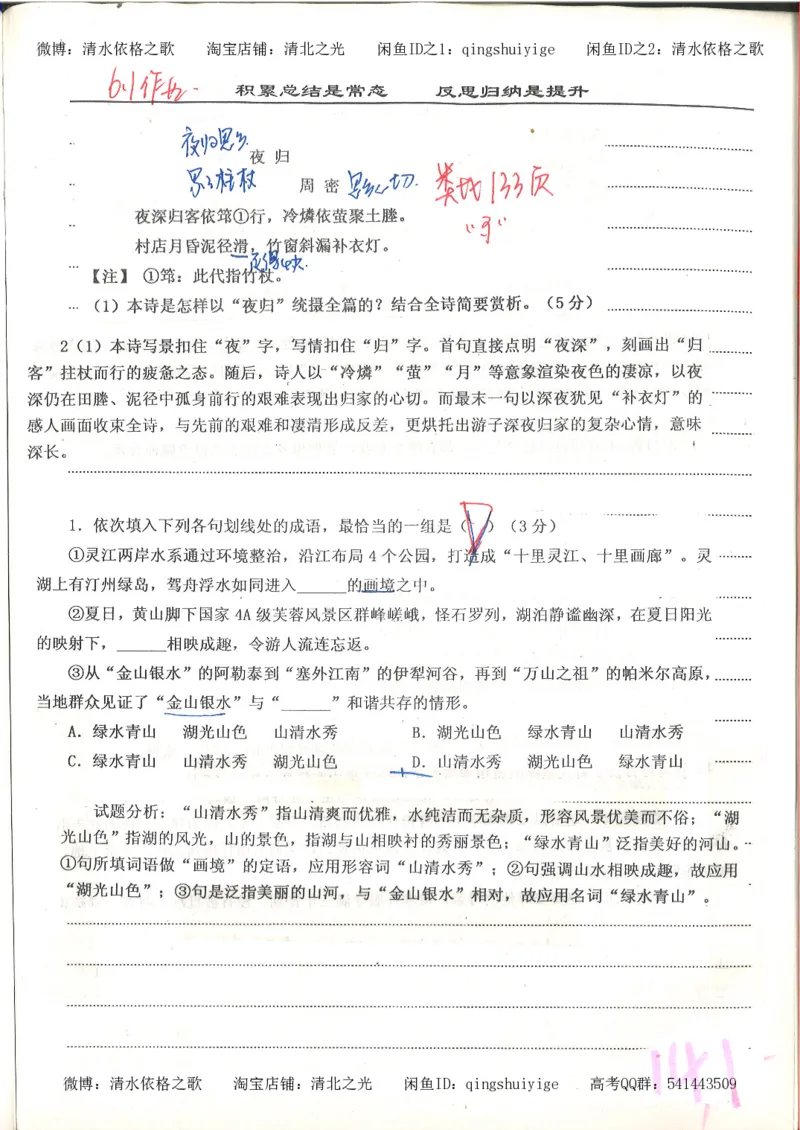 微博：清水依格之歌 淘宝店铺：清北之光 闲鱼ID之1：qingshuiyige 闲鱼ID之2：清水依格之歌
积累总结是常态 反思归纳是提升
夜 归
周 密
类比133页
夜深归客依筇①行，冷燐依萤聚土塍。
村店月昏泥径滑，竹窗斜漏补衣灯。
【注】 ①筇：此代指竹杖。
（1）本诗是怎样以“夜归”统摄全篇的？结合全诗简要赏析。（5 分）
2（1）本诗写景扣住“夜”字，写情扣住“归”字。首句直接点明“夜深”，刻画出“归
客”拄杖而行的疲惫之态。随后，诗人以“冷燐”“萤”“月”等意象渲染夜色的凄凉，以夜
深仍在田塍、泥径中孤身前行的艰难表现出归家的心切。而最末一句以深夜犹见“补衣灯”的
感人画面收束全诗，与先前的艰难和凄清形成反差，更烘托出游子深夜归家的复杂心情，意味
深长。
1．依次填入下列各句划线处的成语，最恰当的一组是（ ）（3 分）
①灵江两岸水系通过环境整治，沿江布局 4 个公园，打造成“十里灵江、十里画廊”。灵
湖上有汀州绿岛，驾舟浮水如同进入______的画境之中。
②夏日，黄山脚下国家 4A 级芙蓉风景区群峰嵯峨，怪石罗列，湖泊静谧幽深，在夏日阳光
的映射下，______相映成趣，令游人流连忘返。
③从“金山银水”的阿勒泰到“塞外江南”的伊犁河谷，再到“万山之祖”的帕米尔高原，
当地群众见证了“金山银水”与“______”和谐共存的情形。
A．绿水青山 湖光山色 山清水秀 B．湖光山色 绿水青山 山清水秀
C．绿水青山 山清水秀 湖光山色 D．山清水秀 湖光山色 绿水青山
试题分析：“山清水秀”指山清爽而优雅，水纯洁而无杂质，形容风景优美而不俗；“湖
光山色”指湖的风光，山的景色，指湖与山相映衬的秀丽景色；“绿水青山”泛指美好的河山。
①句所填词语做“画境”的定语，应用形容词“山清水秀”；②句强调山水相映成趣，故应用
“湖光山色”；③句是泛指美丽的山河，与“金山银水”相对，故应用名词“绿水青山”。
141
微博：清水依格之歌 淘宝店铺：清北之光 闲鱼ID：qingshuiyige 高考QQ群：541443509